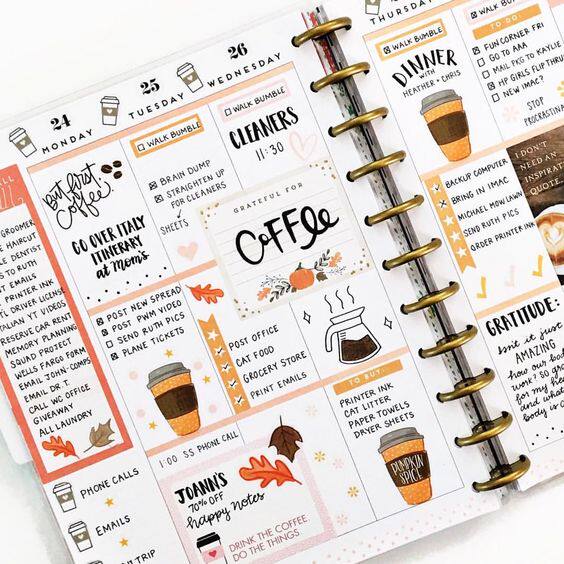 GROOMER
HAIRCUT
DENTIST
TO RUTH
EMAILS
PRINTER INK
DRIVER LICENSE
YT VIDEOS
RESERVE CAR RENT
MEMORY PLANNING
SQUAD PROJECT
WELLS FARGO FORM
EMAIL JOHN-COMPS
EMAIL DR T.
CALL WC OFFICE
GIVEAWAY
ALL LAUNDRY
PHONE CALLS
EMAILS
24
MONDAY
but first
coffee.
GO OVER ITALY
ITINERARY
at MOM'S
POST NEW SPREAD
POST PWM VIDEO
SEND RUTH PICS
PLANE TICKETS
1:00 SS PHONE CALL
JOANN'S
70% OFF
happy notes
DRINK THE COFFEE.
DO THE THINGS.
25
TUESDAY
WALK BUMBLE
BRAIN DUMP
STRAIGHTEN UP
FOR CLEANERS
SHEETS
POST OFFICE
CAT FOOD
GROCERY STORE
PRINT EMAILS
26
WEDNESDAY
WALK BUMBLE
CLEANERS
11:30
GRATEFUL FOR
COFFEE
TO BUY:
PRINTER INK
CAT LITTER
PAPER TOWELS
DRYER SHEETS
PUMPKIN
SPICE
THURSDAY
WALK BUMBLE
DINNER
WITH
HEATHER + CHRIS
BACKUP COMPUTER
BRING IN IMAC
MICHAEL MOW LAWN
SEND RUTH PICS
ORDER PRINTER INK
GRATITUDE:
isn't it just
AMAZING
how our
WALK BUMBLE
TO DO:
FUN CORNER FRI
GO TO AAA
MAIL PKG TO KAYLIE
HP GIRLS FLIP THRU
NEW IMAC?
STOP
I DON'T
NEED AN
QUOTE.